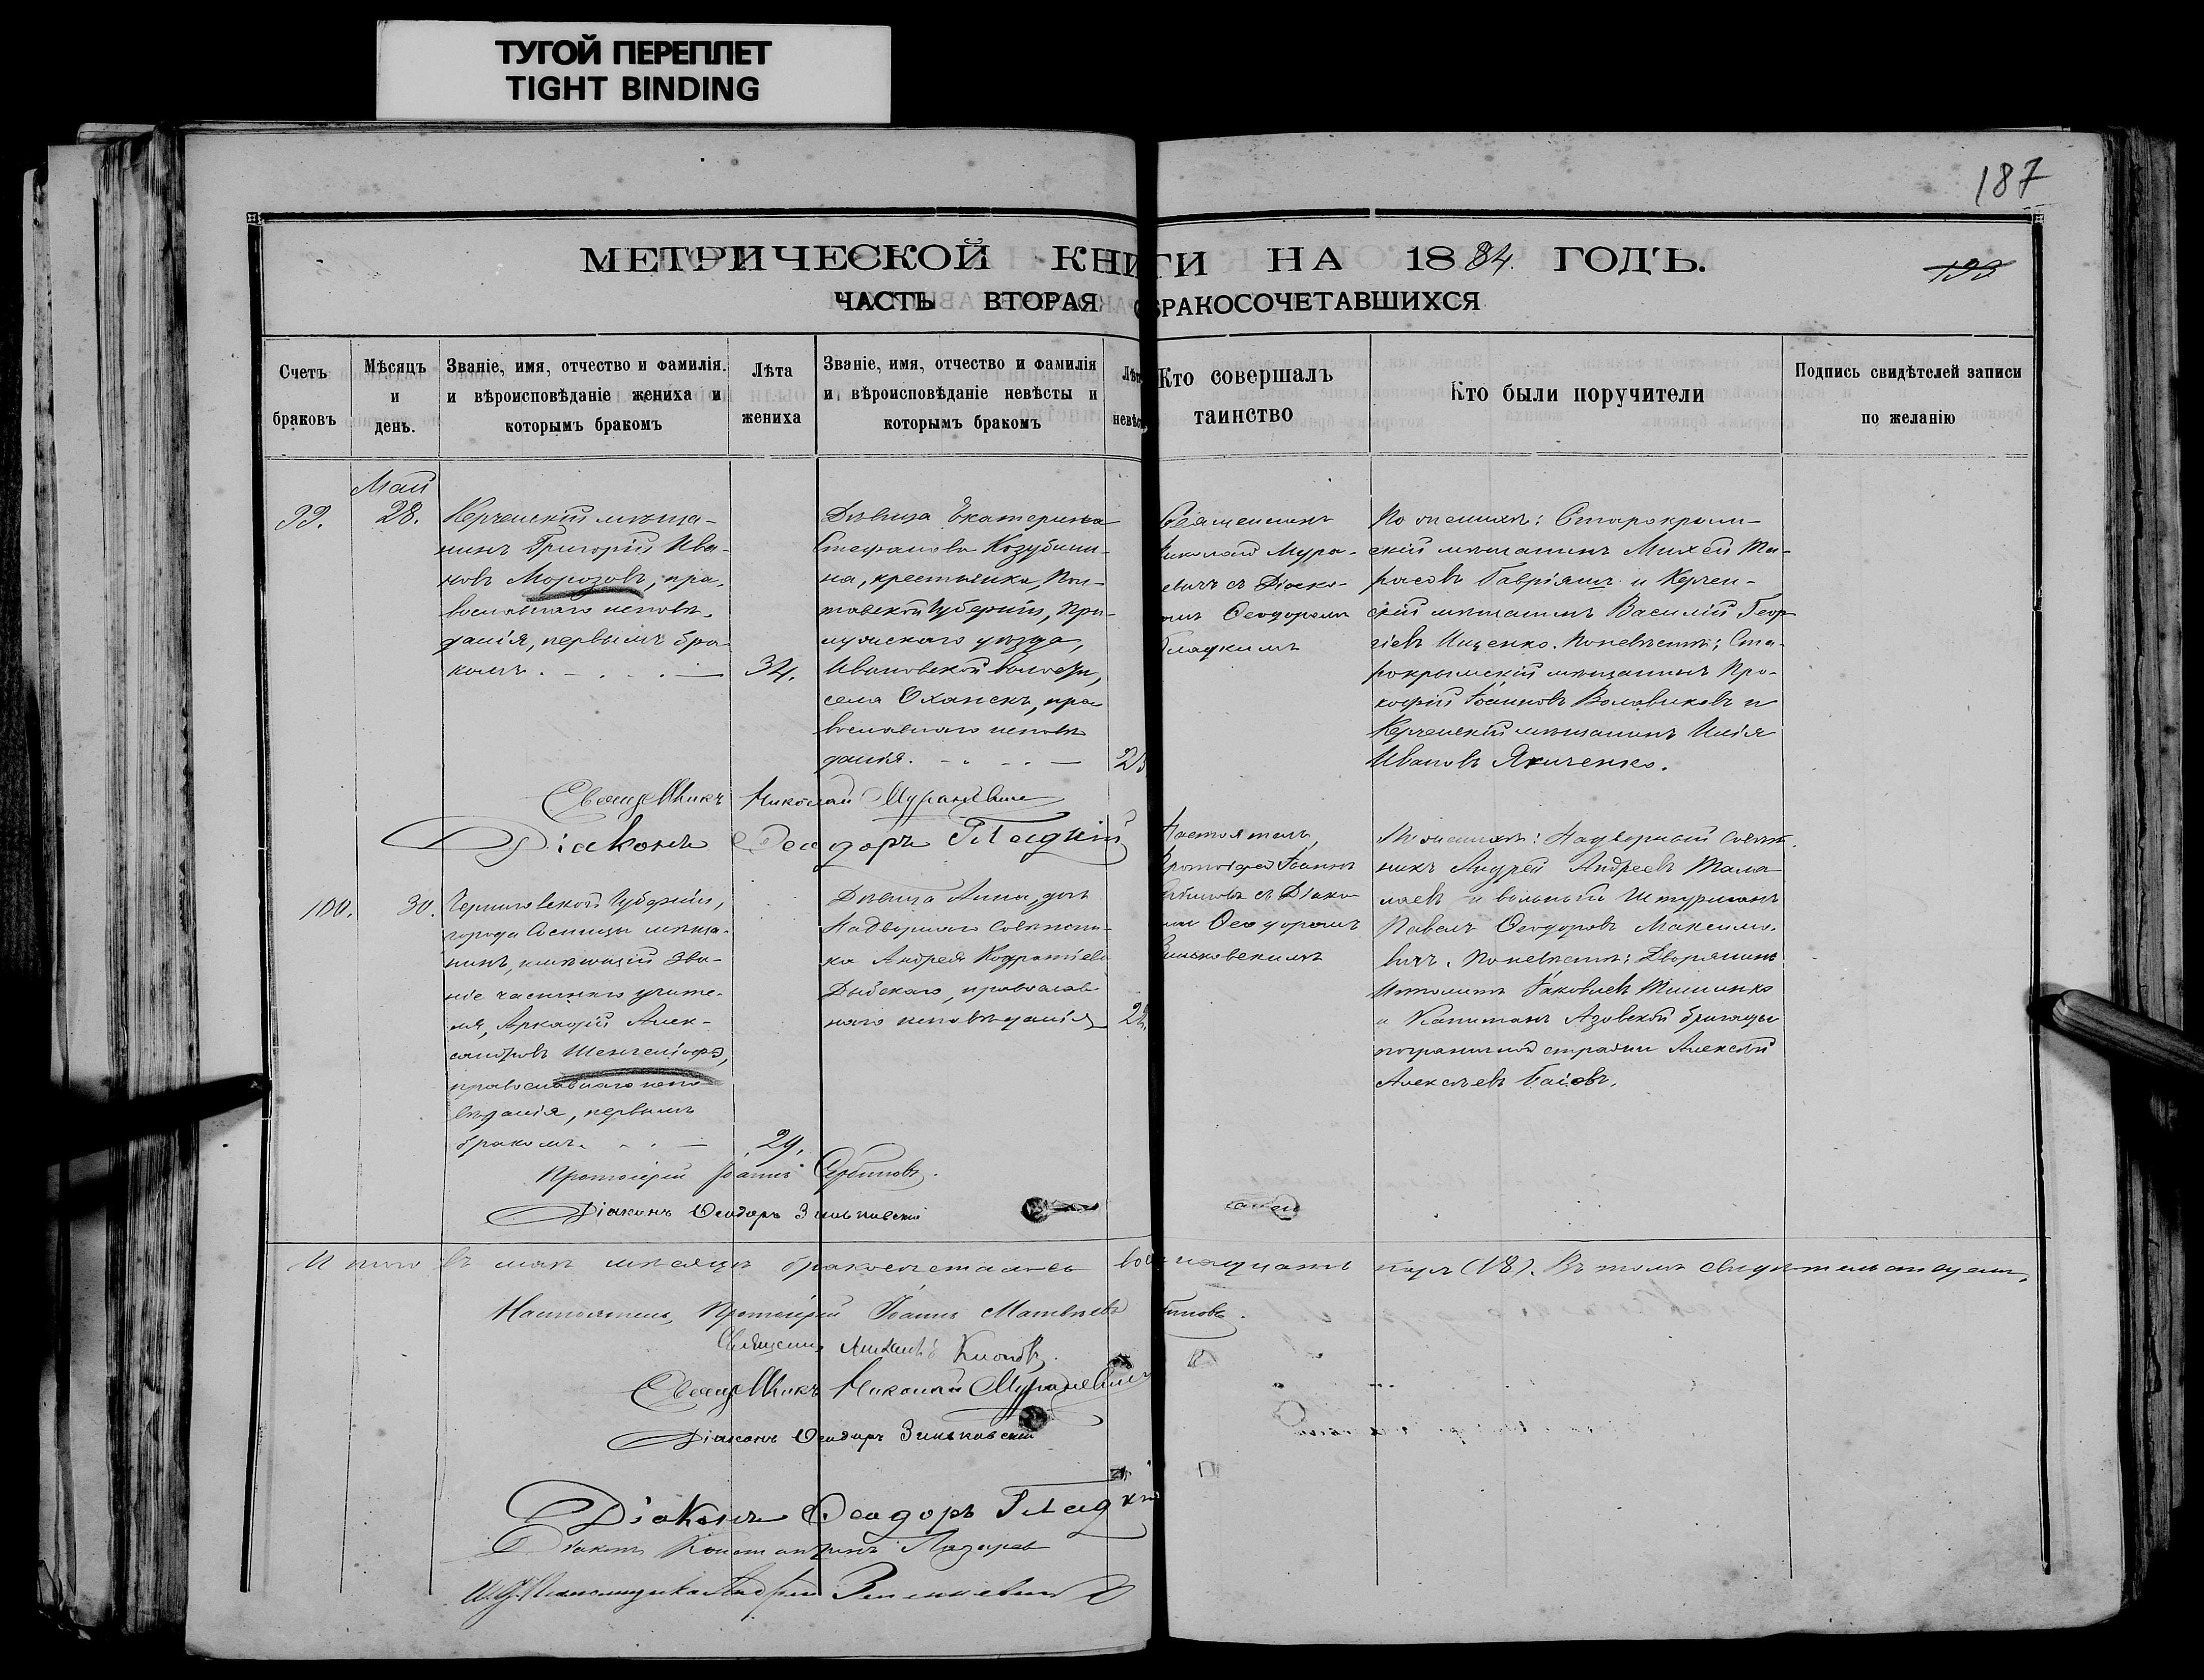 ТУГОЙ ПЕРЕПЛЕТ
TIGHT BINDING
187
МЕТРИЧЕСКОЙ КНИГИ НА 1884. ГОДЪ.
ЧАСТЬ ВТОРАЯ О БРАКОСОЧЕТАВШИХСЯ
Счетъ браковъ
Мѣсяцъ и день.
Званіе, имя, отчество и фамилія.
и вѣроисповѣданіе жениха и
которымъ бракомъ
Лѣта
жениха
Званіе, имя, отчество и фамилія
и вѣроисповѣданіе невѣсты и
которымъ бракомъ
Лѣт
невѣс
Кто совершалъ
таинство
Кто были поручители
Подпись свидѣтелей записи
по желанію
99.
Май
28.
Керченскій мѣща-
нинъ Григорій Ива-
новъ Морозовъ, пра-
вославнаго исповѣ-
данія, первымъ бра-
комъ.
34.
Дѣвица Екатерина
Стефанова Козубини-
на, крестьянка, Пол-
тавской Губерніи, При-
лукскаго уѣзда,
Ивановской волости,
села Оханскъ, пра
вославнаго исповѣ
данія.
2
Священникъ
Николай Мура-
евичъ съ Діако-
омъ Ѳеодоромъ
Гладкимъ
По женихѣ: Старокрым-
скій мѣщанинъ Михей Та-
расовъ Гаврішъ и Керчен-
скій мѣщанинъ Василій Геор
гіевъ Ищенко. По невѣстѣ: Ста-
рокрымскій мѣщанинъ Про-
кофій Іоанновъ Воловиковъ и
Керченскій мѣщанинъ Илія
Ивановъ Якиченко.
Священникъ Николай Мураневичъ
Діаконъ Ѳеодоръ Гладкій
100.
30.
Черниговской Губерніи,
города Сосницы мѣща-
нинъ, имѣющій зва-
ніе частнаго учите-
ля, Аркадій Алек-
сандровъ
православнаго испо-
вѣданія, первымъ
бракомъ.
29.
Дѣвица Анна, дочь
Надворнаго Совѣтни-
ка Андрея Кондратіева
Дыбскаго, православ
наго исповѣданія
22.
Настоятель,
Протоіерей Іоаннъ
съ Діако
омъ Ѳеодоромъ
Зиньковскимъ
По женихѣ: Надворный Совѣт-
никъ Андрей Андреевъ
и вольный Штурманъ
Павелъ Ѳеодоровъ Максимо-
вичъ. По невѣстѣ: Дворянинъ
Ипполитъ Іаковлевъ Тищинко
и Капитанъ Азовской бригады
пограничной стражи Алексѣй
Алексѣевъ Баіовъ.
Протоіерей Іоаннъ Сербиновъ.
Діаконъ Ѳеодоръ Зиньковскій
Итого въ маѣ мѣсяцѣ бракосочеталось восемнадцать паръ (18). Въ томъ свидѣтельствуемъ.
Настоятель, Протоіерей Іоаннъ Матвѣевъ биновъ.
Священникъ
Священникъ Николай Мураневичъ
Діаконъ Ѳеодоръ Зиньковскій
Діаконъ Ѳеодоръ Гладкій
Діаконъ Константинъ Лазарев
И. д. Псаломщика Андрей Зиньковичъ